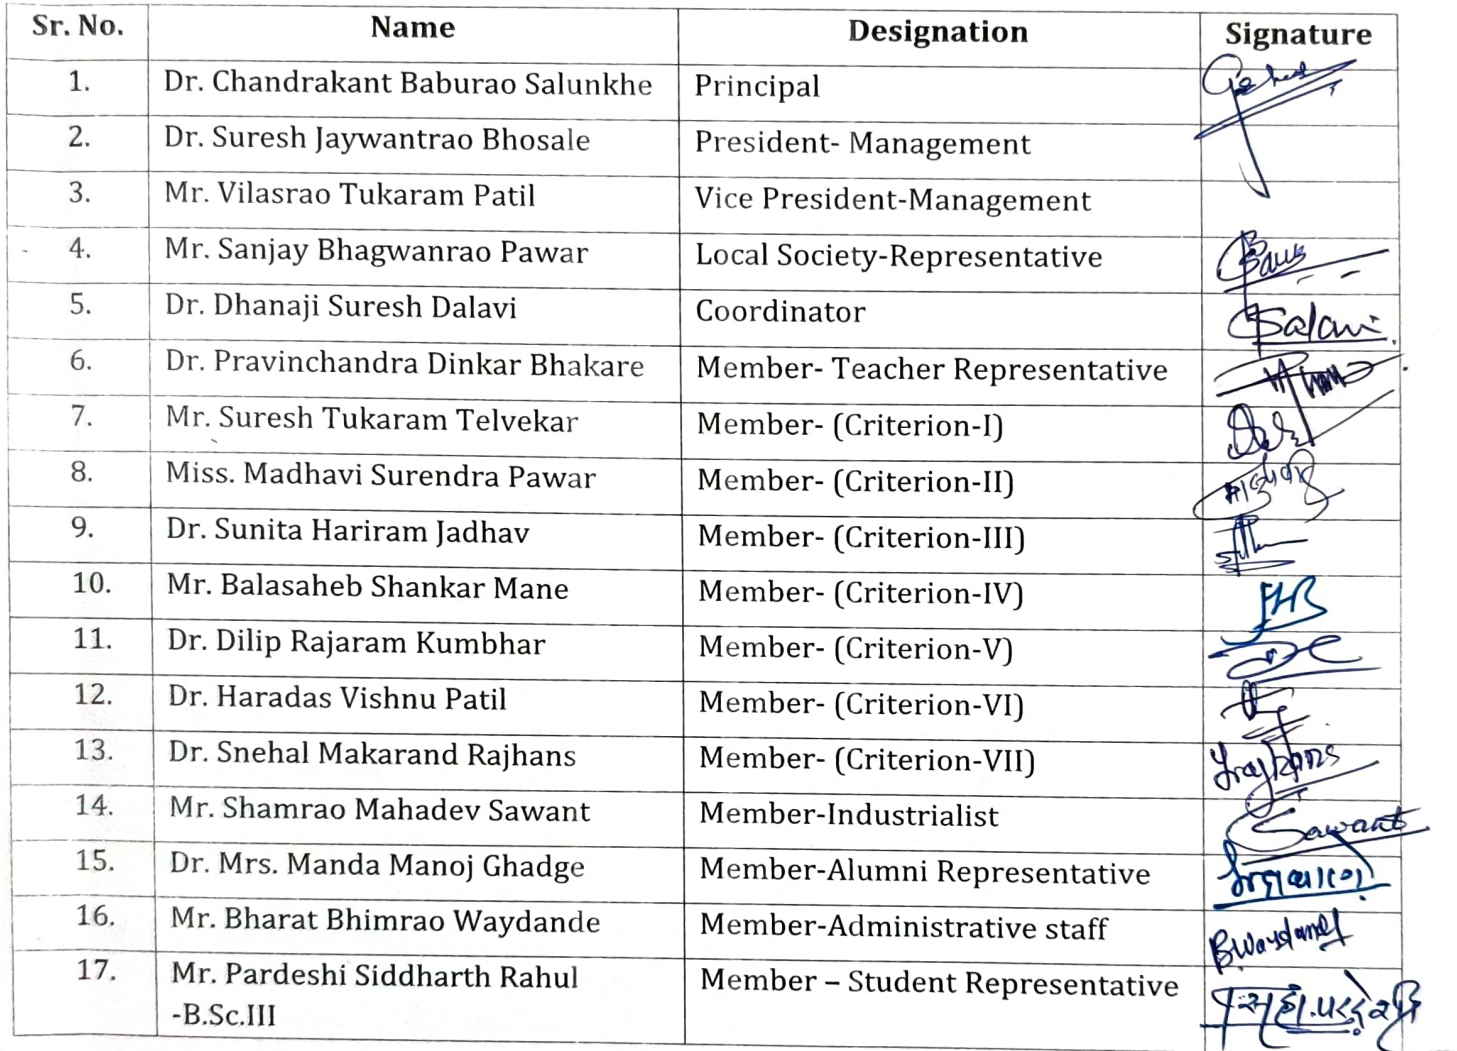 Sr. No. Name Designation Signature
1. Dr. Chandrakant Baburao Salunkhe Principal
2. Dr. Suresh Jaywantrao Bhosale President- Management
3. Mr. Vilasrao Tukaram Patil Vice President-Management
4. Mr. Sanjay Bhagwanrao Pawar Local Society-Representative
5. Dr. Dhanaji Suresh Dalavi Coordinator
6. Dr. Pravinchandra Dinkar Bhakare Member- Teacher Representative
7. Mr. Suresh Tukaram Telvekar Member- (Criterion-I)
8. Miss. Madhavi Surendra Pawar Member- (Criterion-II)
9. Dr. Sunita Hariram Jadhav Member- (Criterion-III)
10. Mr. Balasaheb Shankar Mane Member- (Criterion-IV)
11. Dr. Dilip Rajaram Kumbhar Member- (Criterion-V)
12. Dr. Haradas Vishnu Patil Member- (Criterion-VI)
13. Dr. Snehal Makarand Rajhans Member- (Criterion-VII)
14. Mr. Shamrao Mahadev Sawant Member-Industrialist Sawant
15. Dr. Mrs. Manda Manoj Ghadge Member-Alumni Representative
16. Mr. Bharat Bhimrao Waydande Member-Administrative staff
17. Mr. Pardeshi Siddharth Rahul Member – Student Representative
-B.Sc.III